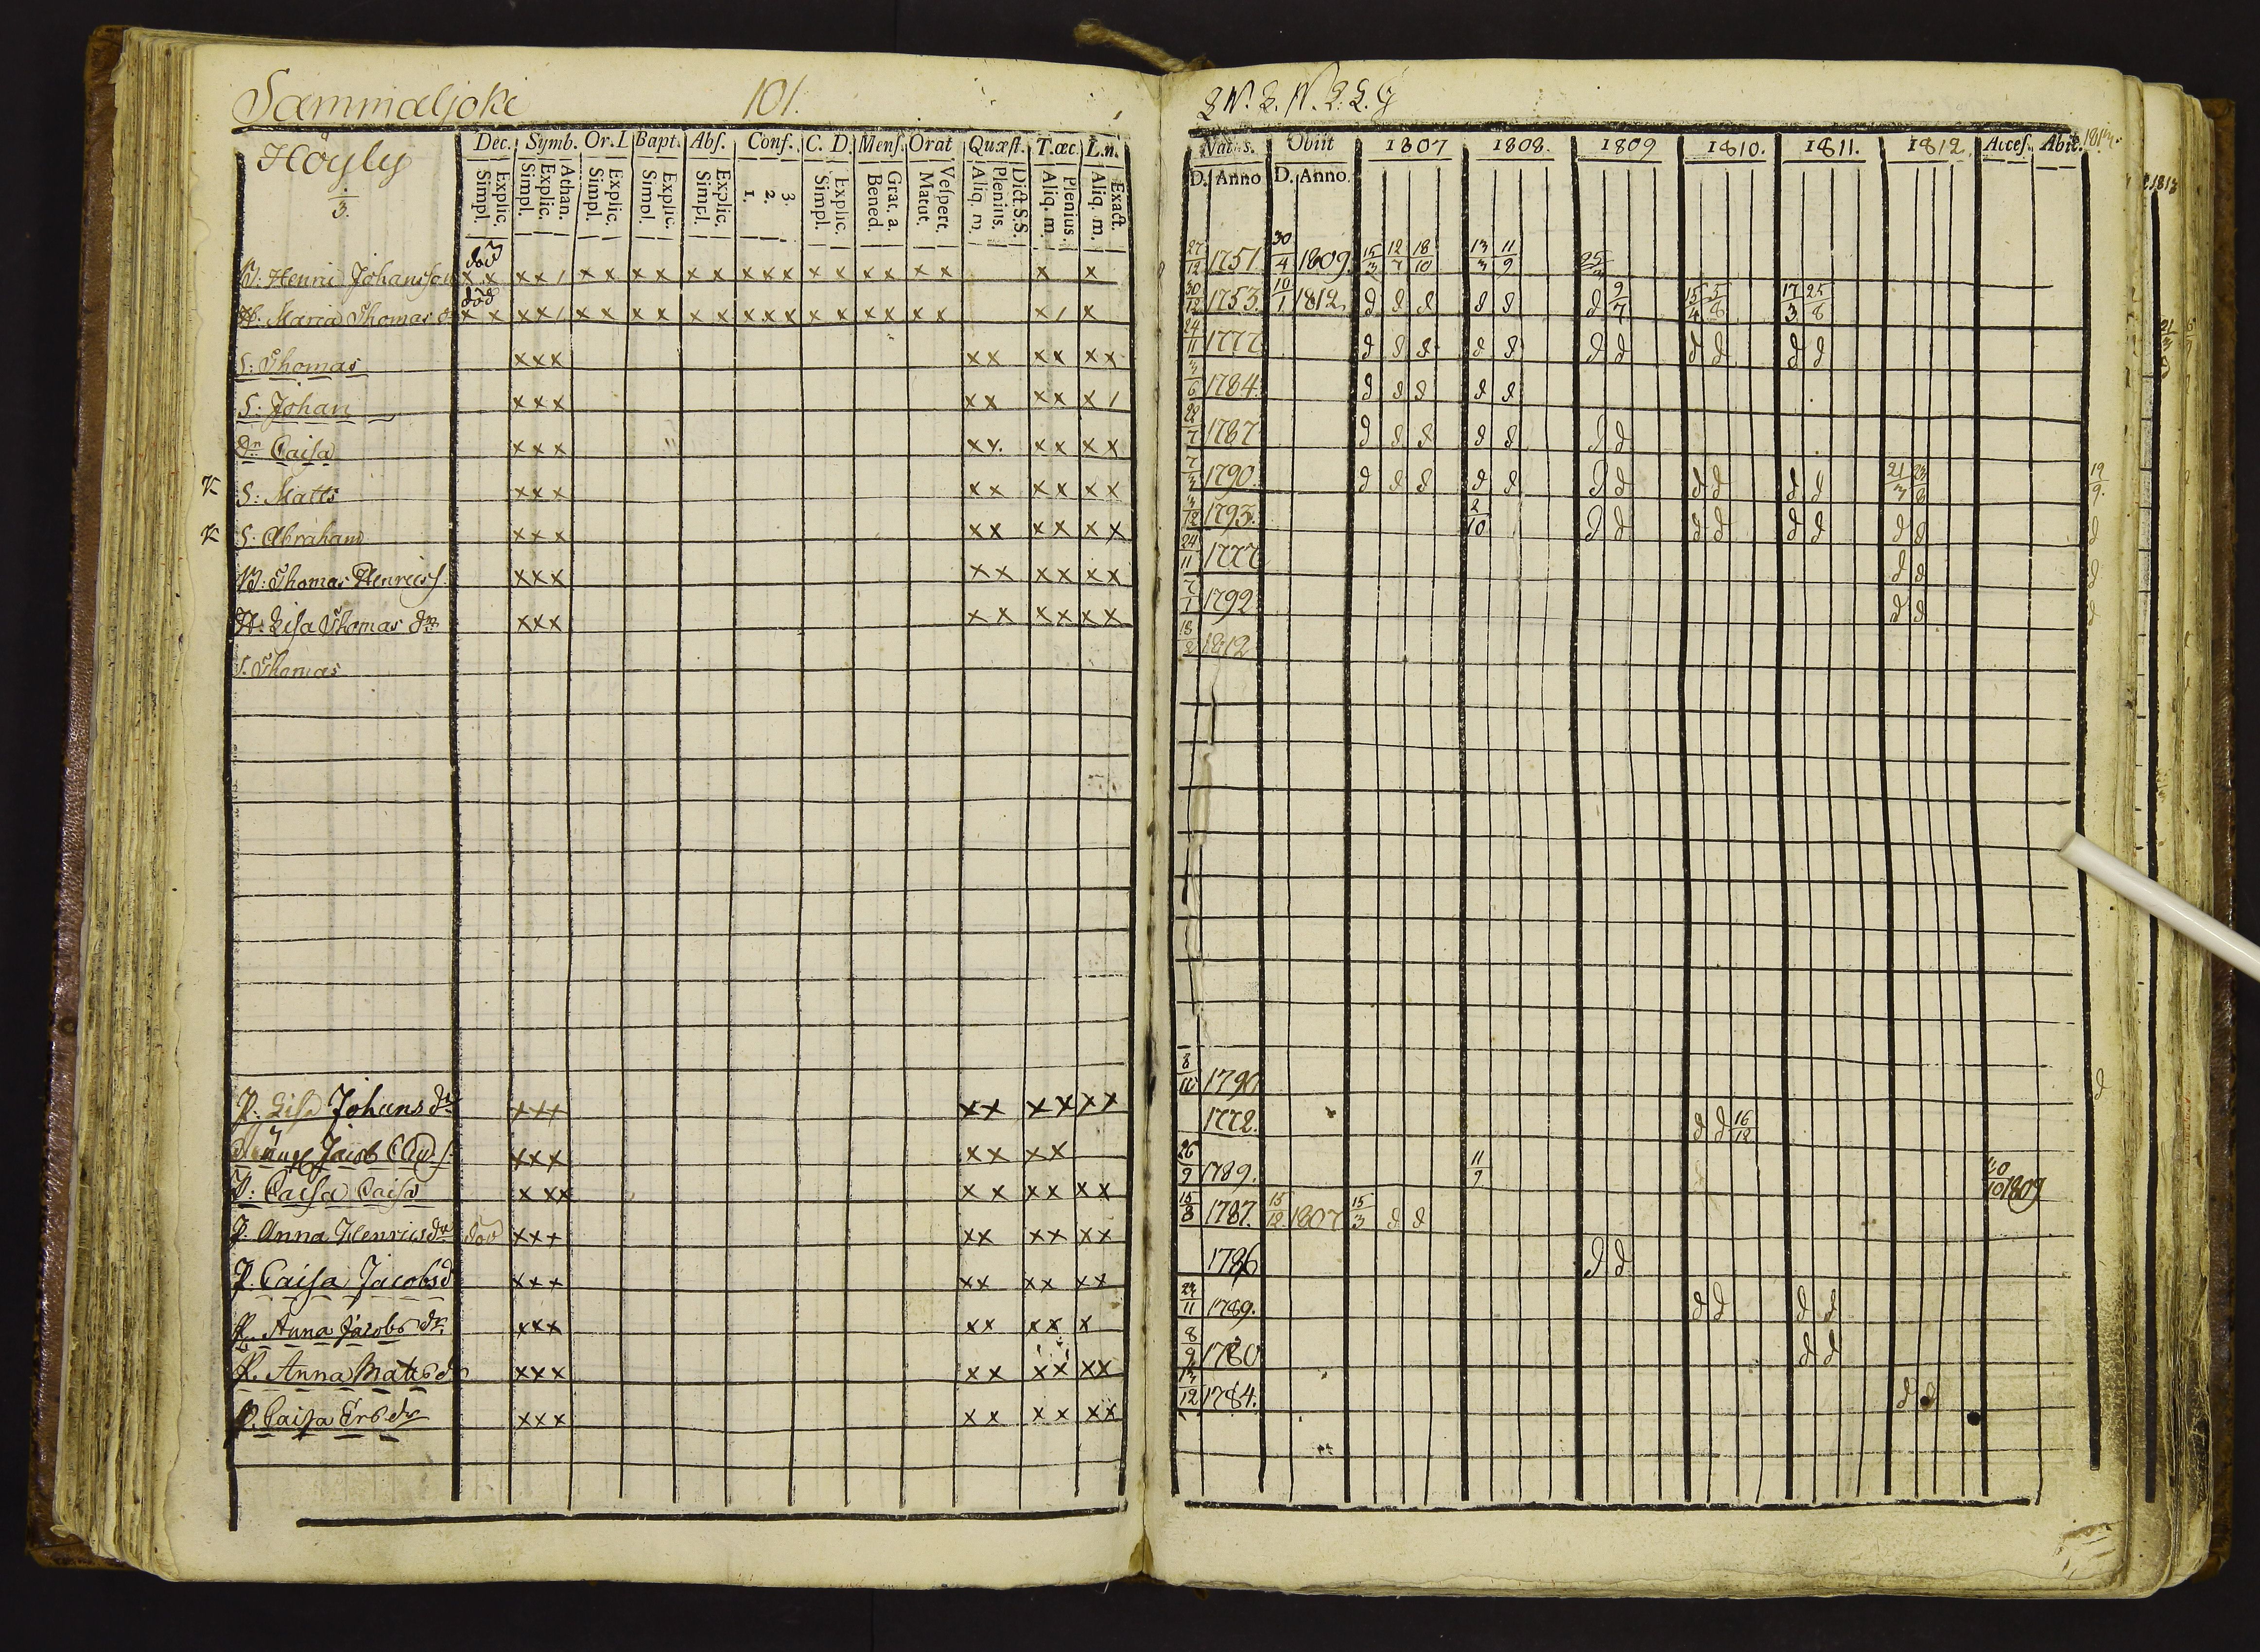 Sammaljoki 101.
Höyly
3.
Dec. Symb. Or. I. Bapt. Abſ. Conf. C. D. Menſ. Orat Quæſt. T. œc. L. n.
Explic. Simpl. Athan. Explic. Simpl. Explic. Simpl. Explic. Simpl. Explic. Simpl. 3. 2. 1. Explic. Simpl. Grat. a. Bened. Veſpert. Matut. Dict S.S. Plenius. Aliq. m. Plenius. Aliq. m. Exact. Aliq. m.
Natus. Obiit 1807 1808. 1809 1810. 1811. 1812. Acceſ. Abit.
D. Anno D. Anno.
1813
B: Henric Johansson död x x x x / x x x x x x x x x x x x x x x x x x 27/12 1751 30/4 1809. 15/3 12/7 18/10 13/3 11/9 25/3
H: Maria Thomas d död x x x x / x x x x x x x x x x x x x x x x / x 30/12 1753. 10/1 1812. d d d d d d 9/7 15/4 5/8 17/3 25/8
S: Thomas x x x x x x x x x 24/11 1777 d d d d d d d d d d d
S: Johan x x x x x x x x / 3/6 1784. d d d d d
Dr Caisa x x x x x. x x x x 28/7 1787 d d d d d d d
K S: Matts x x x x x x x x x 7/3 1790. d d d d d d d d d d d 21/3 23/8 19/9.
K S: Abraham x x x x x x x x x 3/12 1793. 2/10 d d d d d d d d d
B: Thomas Henrics s. x x x x x x x x x 24/11 1777 d d d
H: Lisa Thomas dr x x x x x x x x x 7/1 1792 d d d
S. Thomas 18/8 1812
P. Lisa Johans dr x x x x x x x x x 8/10 1790 d
Jacob x x x x x x x 1772. d d 16/12
P: Caisa Caisa x x x x x x x x x 26/9 1789. 11/9 1809
P. Anna Henricsdr död x x x x x x x x x 15/8 1787. 15/12 1807 15/3 d d
P. Caisa Jacobsd x x x x x x x x x 1786 d d
P. Anna Jacobs dr x x x x x x x x 23/11 1789. d d d d
P. Anna Mats dr x x x x x x x x x 8/9 1780 d d
P. Caisa Ersdr x x x x x x x x x 13/12 1784. d d